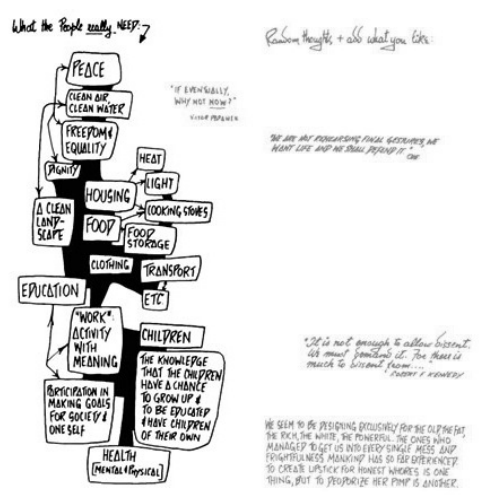 What the People really NEED:
PEACE
CLEAN AIR,
CLEAN WATER
FREEDOM &
EQUALITY
DIGNITY
HEAT
LIGHT
HOUSING
COOKING STOVES
A CLEAN
LAND-
SCAPE
FOOD
FOOD
STORAGE
CLOTHING
TRANSPORT
EDUCATION
ETC
"WORK":
ACTIVITY
WITH
MEANING
CHILDREN
THE KNOWLEDGE
THAT THE CHILDREN
HAVE A CHANCE
TO GROW UP &
TO BE EDUCATED
& HAVE CHILDREN
OF THEIR OWN
PARTICIPATION IN
MAKING GOALS
FOR SOCIETY &
ONE SELF
HEALTH
[MENTAL & PHYSICAL]
"IF EVENTUALLY,
WHY NOT NOW?"
VICTOR PAPANEK
Random thoughts, + add what you like:
"WE ARE NOT REHEARSING FINAL GESTURES, WE
WANT LIFE AND WE SHALL DEFEND IT"
"It is not enough to allow dissent.
We must demand it. For there is
much to dissent from....
" ROBERT F KENNEDY
WE SEEM TO BE DESIGNING EXCLUSIVELY FOR THE OLD, THE FAT,
THE RICH, THE WHITE, THE POWERFUL. THE ONES WHO
MANAGED TO GET US INTO EVERY SINGLE MESS AND
FRIGHTFULNESS MANKIND HAS SO FAR EXPERIENCED.
TO CREATE LIPSTICK FOR HONEST WHORES IS ONE
THING, BUT TO DEODORIZE HER PIMP IS ANOTHER.